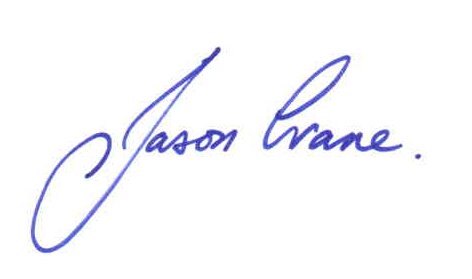 Jason Crane.